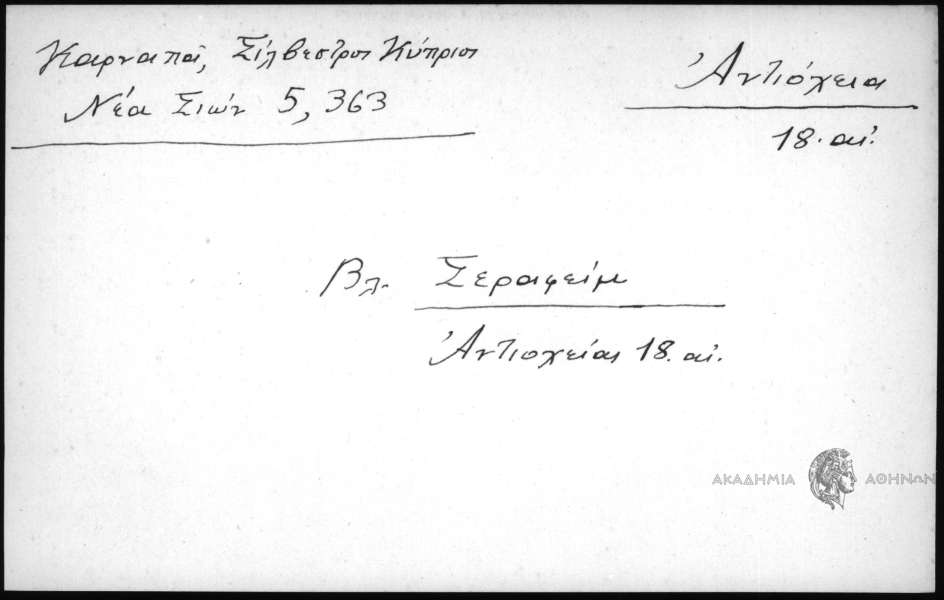 Καρναπᾶ, Σίλβεστρος Κύπριος
Νέα Σιών 5, 363
Ἀντιόχεια
18. αἰ.
Βλ. Σεραφείμ
Ἀντιοχείας 18. αἰ.
ΑΚΑΔΗΜΙΑ ΑΘΗΝΩΝ